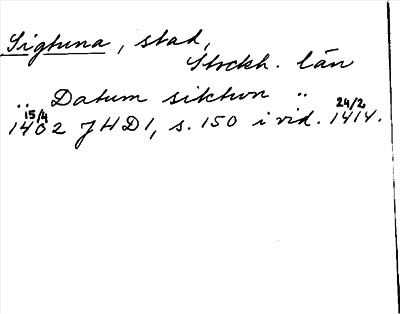 Sigtuna, stad,
Stockh. län
.. Datum siktun ..
15/4 24/2
1402 JHD1, s. 150 i vid. 1414.